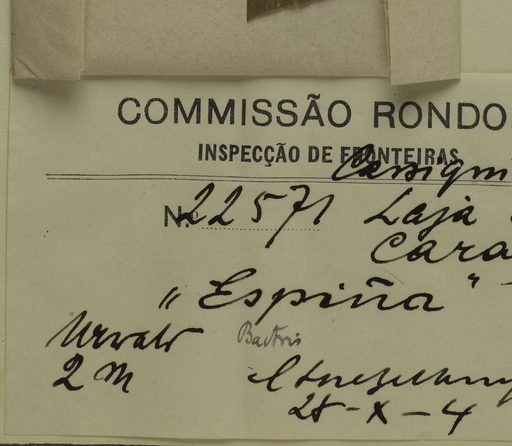 COMMISSÃO RONDO
INSPECÇÃO DE FRONTEIRAS
Nº 22571 Laja
Cara
"Espiña"
Urwald Bactris
2 m
28-X-4